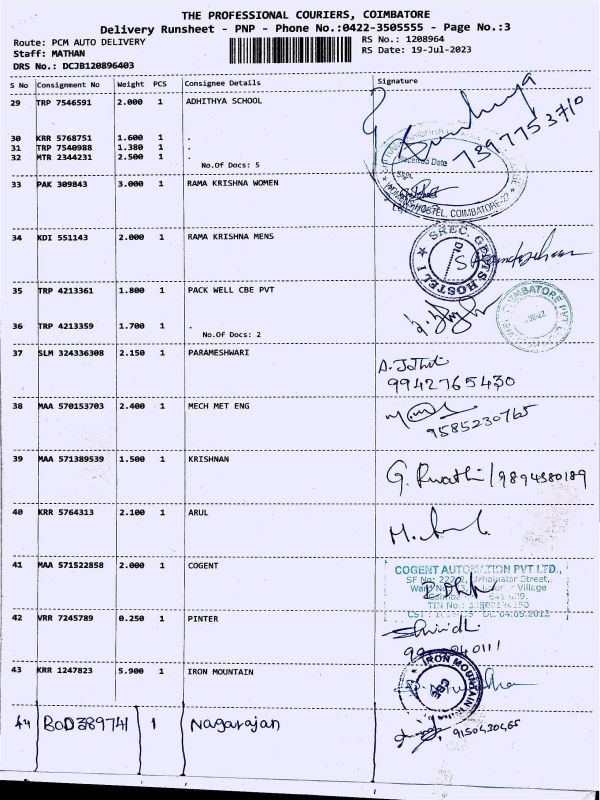 THE PROFESSIONAL COURIERS, COIMBATORE
Delivery Runsheet - PNP - Phone No.:0422-3505555 - Page No.:3
Route: PCM AUTO DELIVERY RS No.: 1208964
Staff: MATHAN RS Date: 19-Jul-2023
DRS No.: DCJB120896403
S No Consignment No Weight PCS Consignee Details Signature
29 TRP 7546591 2.000 1 ADHITHYA SCHOOL
7397753710
30 KRR 5768751 1.600 1 .
31 TRP 7540988 1.380 1 .
32 MTR 2344231 2.500 1 .
No.Of Docs: 5
Received Date
Sign.
HOSTEL, COIMBATORE-22
33 PAK 309843 3.000 1 RAMA KRISHNA WOMEN
34 KDI 551143 2.000 1 RAMA KRISHNA MENS
SREC. GENTS HOSTEL I
35 TRP 4213361 1.800 1 PACK WELL CBE PVT
36 TRP 4213359 1.700 1 .
No.Of Docs: 2
37 SLM 324336308 2.150 1 PARAMESHWARI
A. Jothi
9942765430
38 MAA 570153703 2.400 1 MECH MET ENG
9585230765
39 MAA 571389539 1.500 1 KRISHNAN
40 KRR 5764313 2.100 1 ARUL
41 MAA 571522858 2.000 1 COGENT
COGENT AUTOMATION PVT LTD.,
42 VRR 7245789 0.250 1 PINTER
43 KRR 1247823 5.900 1 IRON MOUNTAIN
IRON MOUNTAIN
44 BOD389741 1 Nagarajan
9150430465